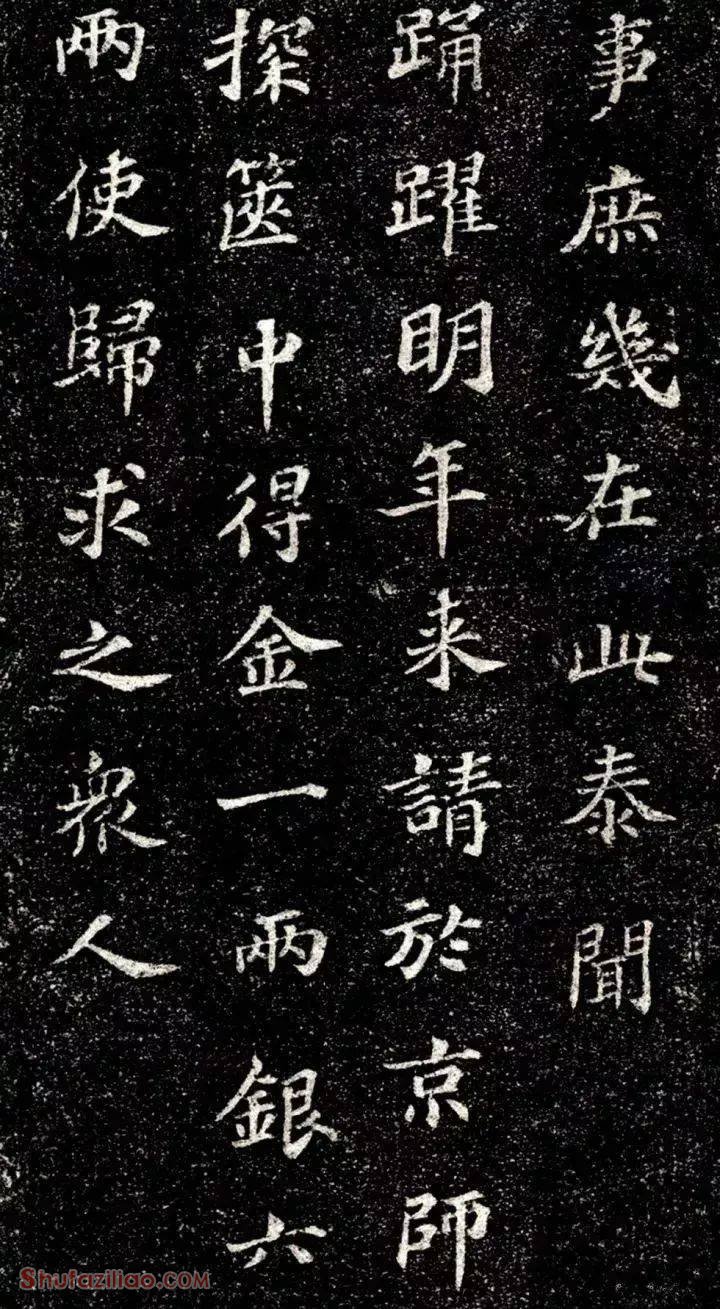 事庶幾在此泰聞
踊躍明年来請於京師
探篋中得金一兩銀六
兩使歸求之衆人
Shufaziliao.COM